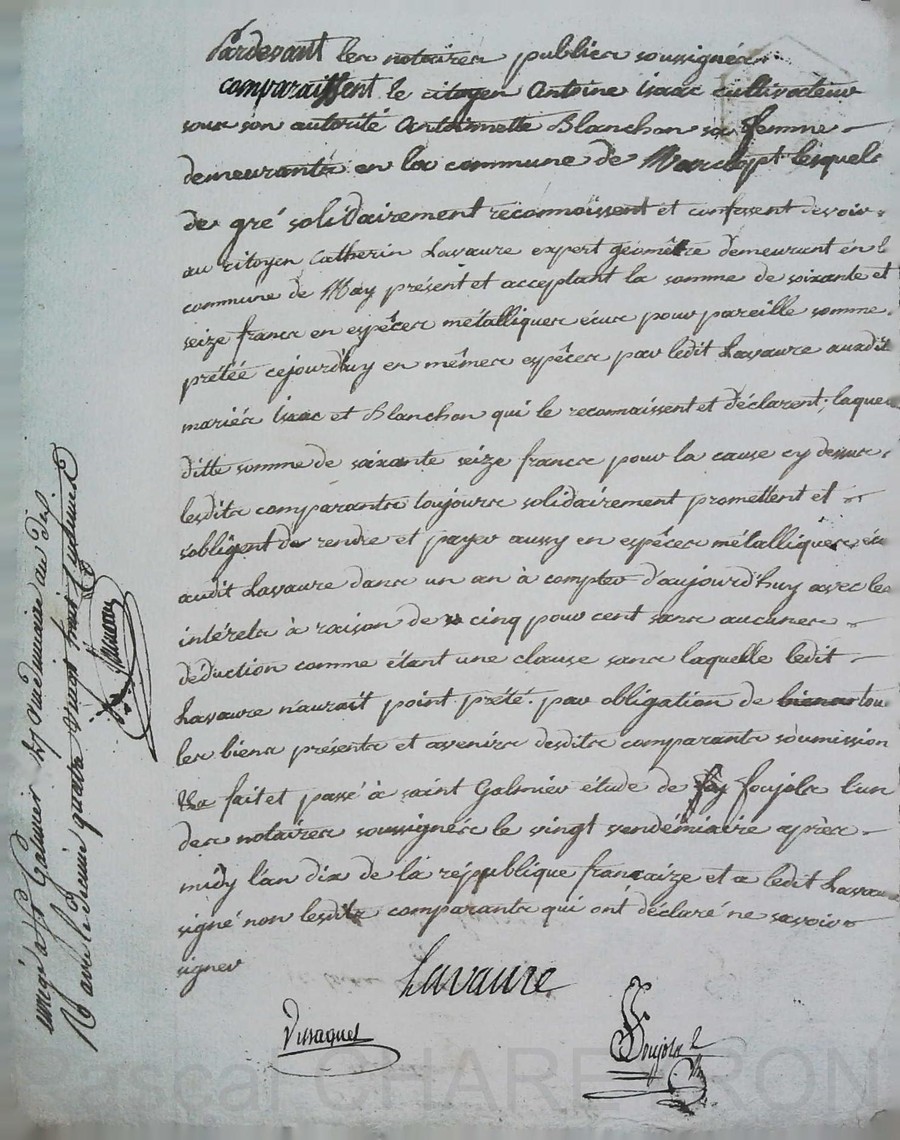 Pardevant les notaires publics soussignés
comparaissent le citoyen Antoine Isaac cultivateur
sous son autorité Antoinette Blanchon sa femme
demeurants en la commune de lesquels
de gré solidairement reconnoissent et confessent devoir
au citoyen Catherin Lavaure expert géomêtre demeurant en l
commune de May présent et acceptant la somme de soixante et
seize francs en espêces métalliques écus pour pareille somme
prêtée cejourd'huy en mêmes espêces par ledit Lavaure auxdit
mariés Isaac et Blanchon qui le reconnaissent et déclarent; laquel
ditte somme de soixante seize francs pour la cause cy dessus
lesdits comparants toujours solidairement promettent et
s'obligent de rendre et payer aussy en espêces métalliques éc
audit Lavaure dans un an à compter d'aujourd'huy avec les
intérets à raison de cinq pour cent sans aucunes
déduction comme étant une clause sans laquelle ledit
Lavaure n'aurait point prété. par obligation de biens tou
les biens présents et avenirs desdits comparants soumission
fait et passé à saint Galmier étude de Foujols l'un
des notaires soussignés le vingt vendémiaire après
midy l'an dix de la république françaize et a ledit Lavau
signé non lesdits comparants qui ont déclaré ne savoir
signer
Lavaure
Foujols
enregé à St Galmier
Pascal CHAREYRON